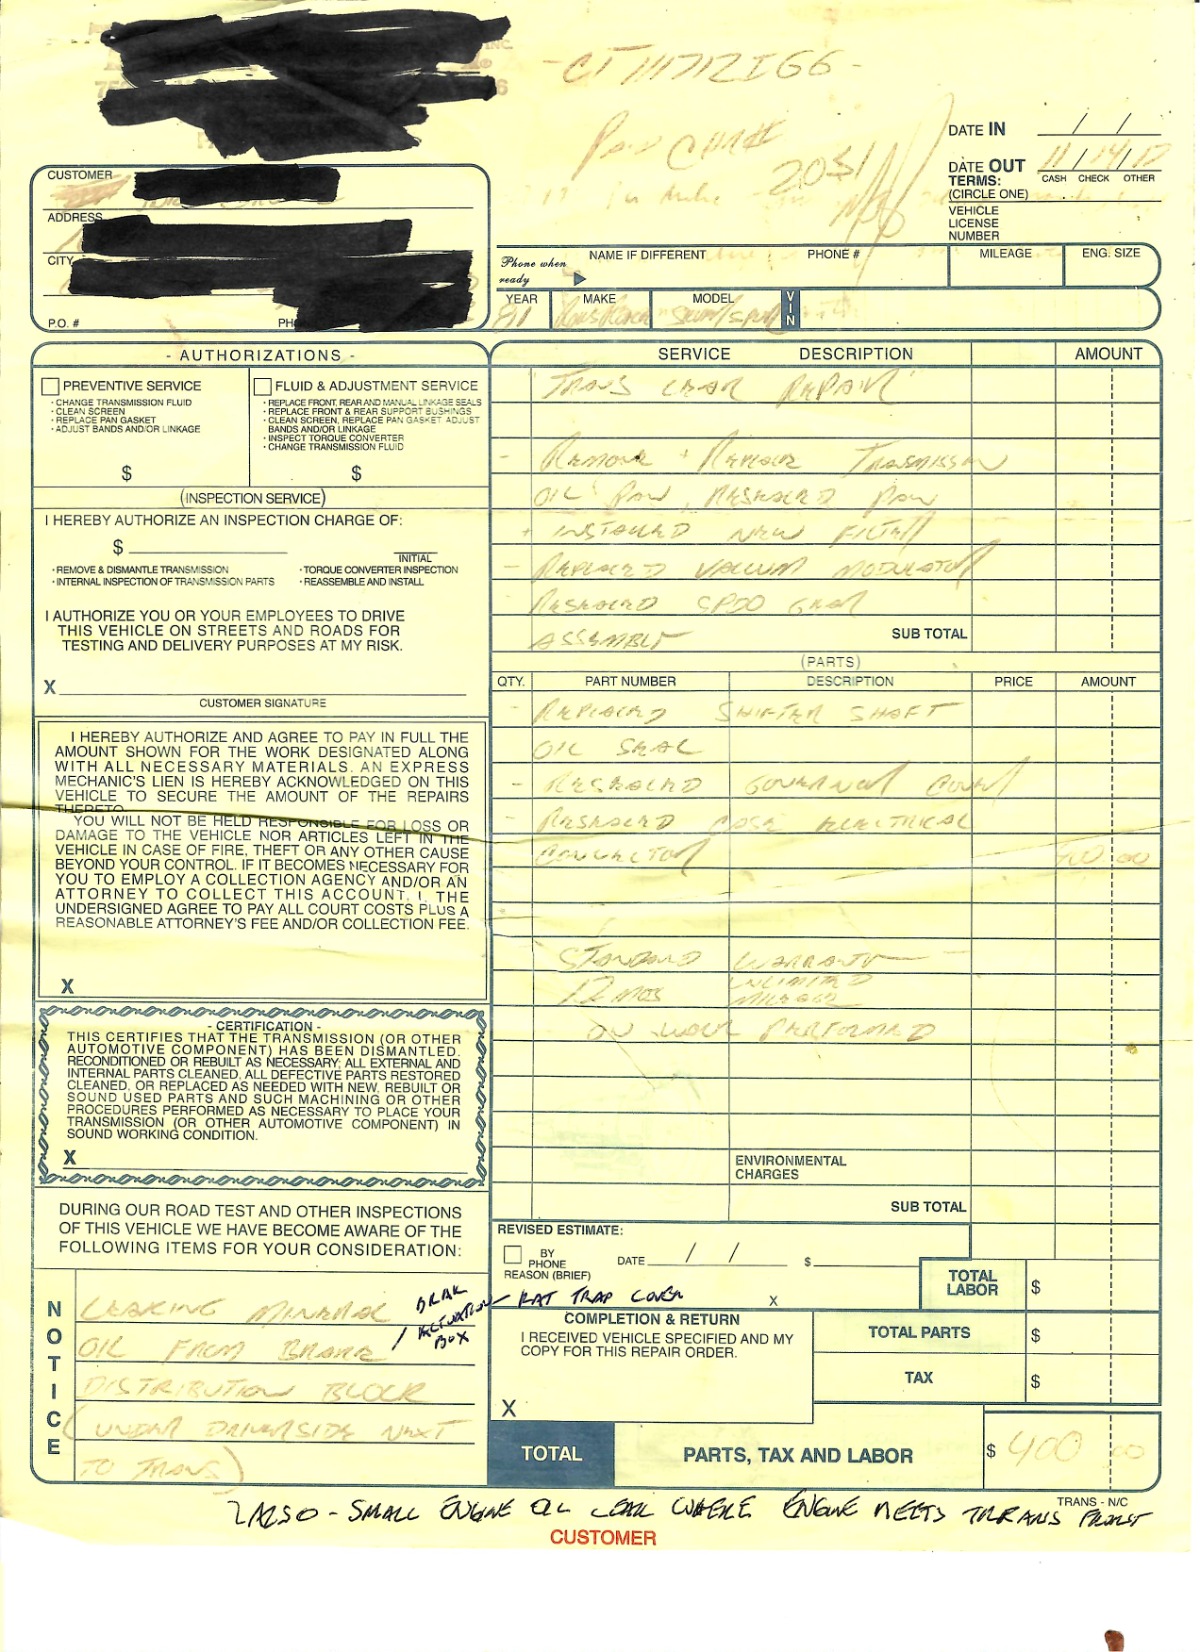 INC.
- CT 1117172166 -
Paid Check
2051
DATE IN / /
DATE OUT 11 / 14 / 17
TERMS: CASH CHECK OTHER
(CIRCLE ONE)
VEHICLE
LICENSE
NUMBER
CUSTOMER
ADDRESS
CITY
P.O. #
Phone when
ready
NAME IF DIFFERENT PHONE # MILEAGE ENG. SIZE
YEAR MAKE MODEL VIN
- AUTHORIZATIONS -
PREVENTIVE SERVICE
· CHANGE TRANSMISSION FLUID
· CLEAN SCREEN
· REPLACE PAN GASKET
· ADJUST BANDS AND/OR LINKAGE
$
FLUID & ADJUSTMENT SERVICE
· REPLACE FRONT, REAR AND MANUAL LINKAGE SEALS
· REPLACE FRONT & REAR SUPPORT BUSHINGS
· CLEAN SCREEN, REPLACE PAN GASKET ADJUST
BANDS AND/OR LINKAGE
· INSPECT TORQUE CONVERTER
· CHANGE TRANSMISSION FLUID
$
(INSPECTION SERVICE)
I HEREBY AUTHORIZE AN INSPECTION CHARGE OF:
$
INITIAL
· REMOVE & DISMANTLE TRANSMISSION · TORQUE CONVERTER INSPECTION
· INTERNAL INSPECTION OF TRANSMISSION PARTS · REASSEMBLE AND INSTALL
I AUTHORIZE YOU OR YOUR EMPLOYEES TO DRIVE
THIS VEHICLE ON STREETS AND ROADS FOR
TESTING AND DELIVERY PURPOSES AT MY RISK.
X
CUSTOMER SIGNATURE
I HEREBY AUTHORIZE AND AGREE TO PAY IN FULL THE
AMOUNT SHOWN FOR THE WORK DESIGNATED ALONG
WITH ALL NECESSARY MATERIALS. AN EXPRESS
MECHANIC'S LIEN IS HEREBY ACKNOWLEDGED ON THIS
VEHICLE TO SECURE THE AMOUNT OF THE REPAIRS
THERETO.
YOU WILL NOT BE HELD RESPONSIBLE FOR LOSS OR
DAMAGE TO THE VEHICLE NOR ARTICLES LEFT IN THE
VEHICLE IN CASE OF FIRE, THEFT OR ANY OTHER CAUSE
BEYOND YOUR CONTROL. IF IT BECOMES NECESSARY FOR
YOU TO EMPLOY A COLLECTION AGENCY AND/OR AN
ATTORNEY TO COLLECT THIS ACCOUNT, I, THE
UNDERSIGNED AGREE TO PAY ALL COURT COSTS PLUS A
REASONABLE ATTORNEY'S FEE AND/OR COLLECTION FEE.
X
- CERTIFICATION -
THIS CERTIFIES THAT THE TRANSMISSION (OR OTHER
AUTOMOTIVE COMPONENT) HAS BEEN DISMANTLED.
RECONDITIONED OR REBUILT AS NECESSARY; ALL EXTERNAL AND
INTERNAL PARTS CLEANED, ALL DEFECTIVE PARTS RESTORED
CLEANED, OR REPLACED AS NEEDED WITH NEW, REBUILT OR
SOUND USED PARTS AND SUCH MACHINING OR OTHER
PROCEDURES PERFORMED AS NECESSARY TO PLACE YOUR
TRANSMISSION (OR OTHER AUTOMOTIVE COMPONENT) IN
SOUND WORKING CONDITION.
X
DURING OUR ROAD TEST AND OTHER INSPECTIONS
OF THIS VEHICLE WE HAVE BECOME AWARE OF THE
FOLLOWING ITEMS FOR YOUR CONSIDERATION:
NOTICE
LEAKING MINERAL
OIL FROM BRAKE
DISTRIBUTION BLOCK
(UNDER DRIVERSIDE NEXT
TO TRANS)
BRAK
/ ACTUATION
BOX
- RAT TRAP COVER
SERVICE DESCRIPTION AMOUNT
"TRANS LEAK REPAIR"
- REMOVE + REPLACE TRASMISSION
OIL PAN, RESEALED PAN
+ INSTALLED NEW FILTER
- REPLACED VACUUM MODULATOR
- RESEALED SPDO GEAR
ASSEMBLY SUB TOTAL
(PARTS)
QTY. PART NUMBER DESCRIPTION PRICE AMOUNT
- REPLACED SHIFTER SHAFT
OIL SEAL
- RESEALED GOVERNOR COVER
- RESEALED CASE ELECTRICAL
CONNECTOR 400.00
STANDARD WARRANTY
12 MOS UNLIMITED
MILEAGE
ON WORK PERFORMED
ENVIRONMENTAL
CHARGES
SUB TOTAL
REVISED ESTIMATE:
BY
PHONE DATE / / $
REASON (BRIEF)
X
COMPLETION & RETURN
I RECEIVED VEHICLE SPECIFIED AND MY
COPY FOR THIS REPAIR ORDER.
X
TOTAL
LABOR $
TOTAL PARTS $
TAX $
TOTAL PARTS, TAX AND LABOR $ 400 00
TRANS - N/C
ALSO - SMALL ENGINE OIL LEAK WHERE ENGINE MEETS TRRANS FRONT
CUSTOMER